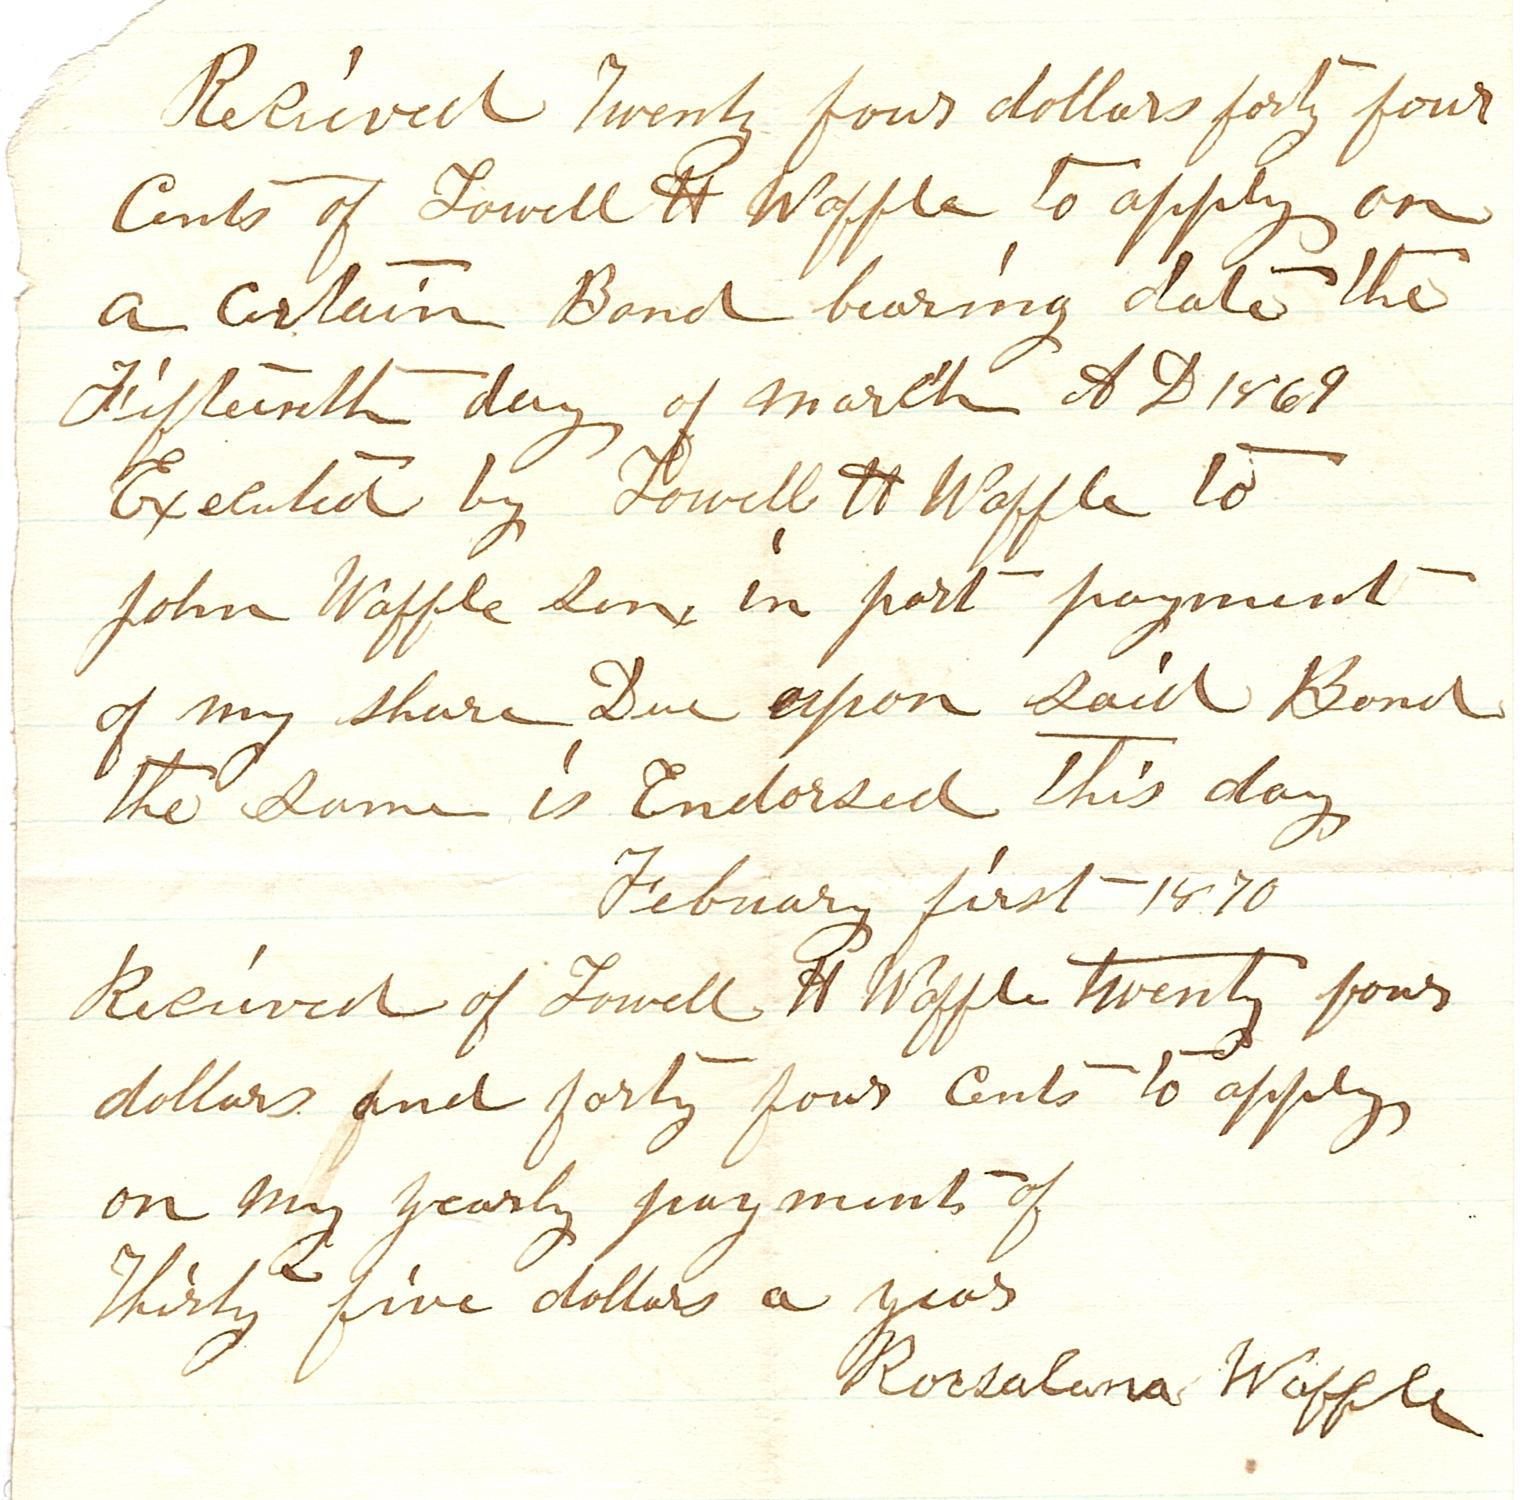 Recieved Twenty four dollars forty four
Cents of Lowell H Waffle to apply on
a Certain Bond bearing date the
Fifteenth day of march A D 1869
Executed by Lowell H Waffle to
John Waffle sen, in part payment
of my share Due upon said Bond
the same is Endorsed this day
Febuary first 1870
Recieved of Lowell H Waffle twenty four
dollars and forty four Cents to apply
on my yearly payments of
Thirty five dollars a year
Roesalana Waffle